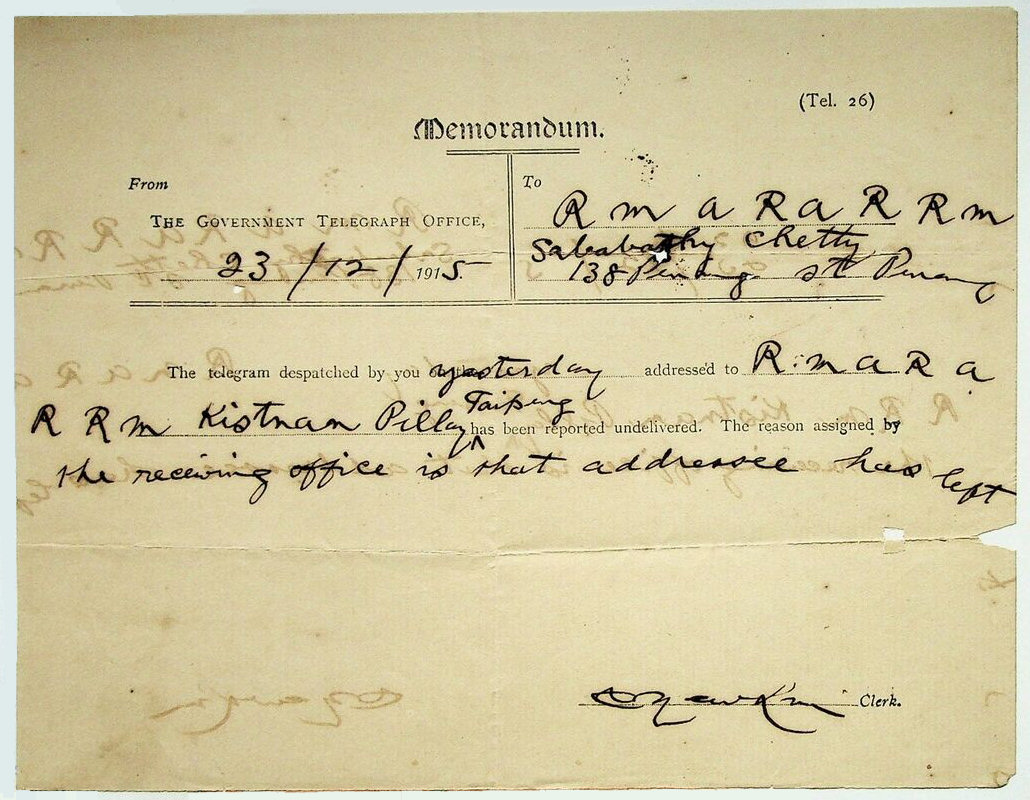 (Tel. 26)
Memorandum.
From
To
THE GOVERNMENT TELEGRAPH OFFICE,
23/12/1915
R m a R a R R m
Chetty
138 Pinang st Penang
The telegram despatched by you yesterday addressed to R m a R a
R R m Kistnan Pillay Taiping has been reported undelivered. The reason assigned by
the receiving office is that addressee has left
Clerk.